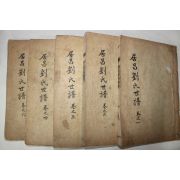 居昌劉氏世譜 卷之一
居昌劉氏世譜
居昌劉氏世譜 卷之三
居昌劉氏世譜
居昌劉氏世譜